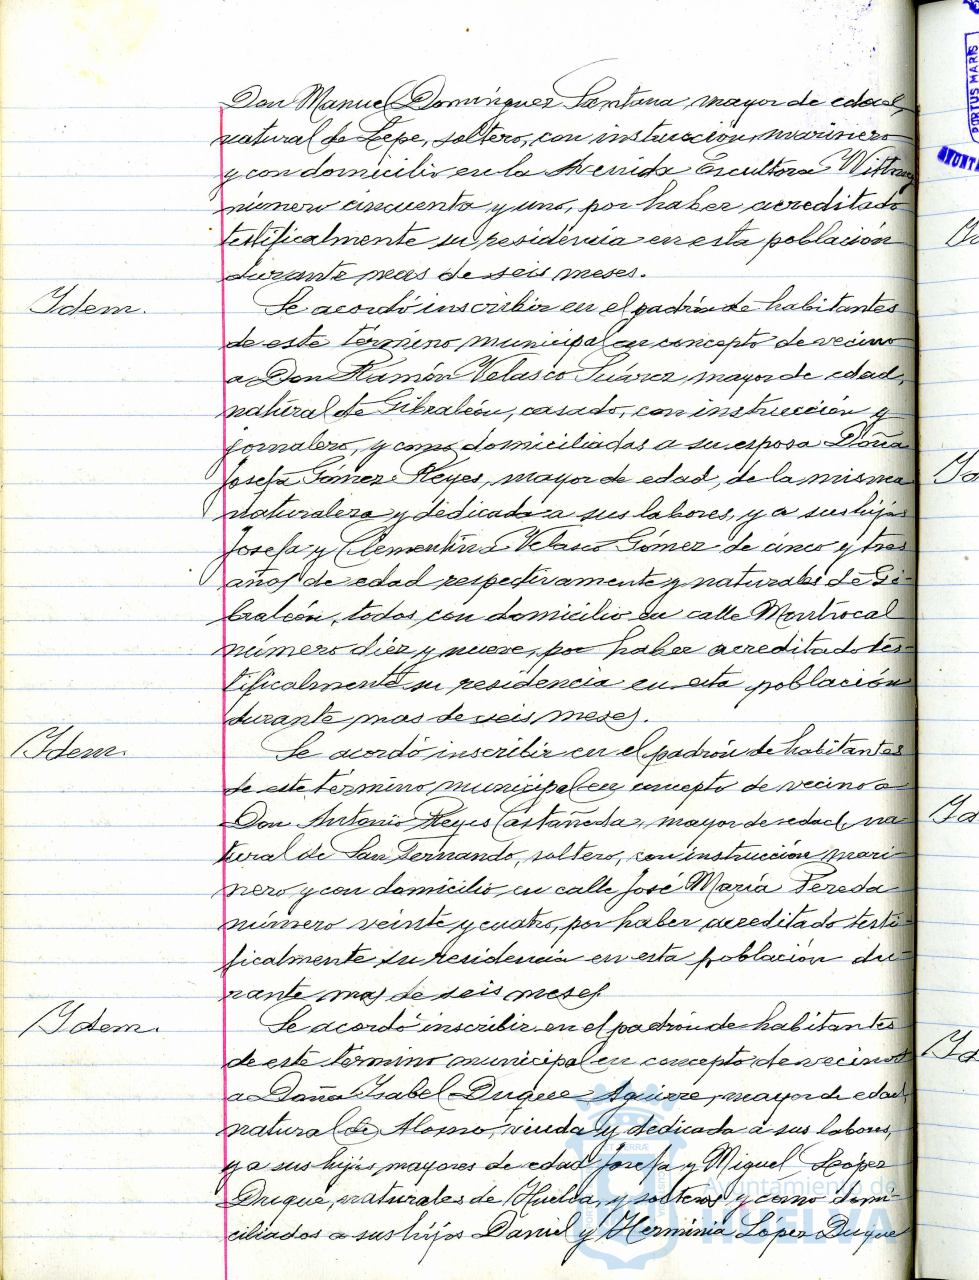 Don Manuel Domínguez Santana, mayor de edad,
natural de Lepe, soltero, con instrucción, marinero
y con domicilio en la Avenida Escultora Withney
número cincuenta y uno, por haber acreditado
testificalmente su residencia en esta población
durante mas de seis meses.
Idem.
Se acordó inscribir en el padrón de habitantes
de este término municipal en concepto de vecino
a Don Ramón Velasco Suárez, mayor de edad,
natural de Gibraleón, casado, con instrucción y
jornalero, y como domiciliados a su esposa Doña
Josefa Gómez Reyes, mayor de edad, de la misma
naturaleza y dedicada a sus labores, y a sus hijas
Josefa y Clementina Velasco Gómez de cinco y tres
años de edad respectivamente y naturales de Gi-
braleón, todos con domicilio en calle Montrocal
número diez y nueve, por haber acreditado tes-
tificalmente su residencia en esta población
durante mas de seis meses.
Idem.
Se acordó inscribir en el padrón de habitantes
de este término municipal en concepto de vecino a
Don Antonio Reyes Castañeda, mayor de edad, na-
tural de San Fernando, soltero, con instrucción mari-
nero y con domicilio en calle José María Pereda
número veinte y cuatro, por haber acreditado testi-
ficalmente su residencia en esta población du-
rante mas de seis meses
Idem.
Se acordó inscribir en el padrón de habitantes
de este término municipal en concepto de vecinos
a Doña Isabel Duque Aguirre, mayor de edad,
natural de Alosno, viuda y dedicada a sus labores,
y a sus hijos mayores de edad Josefa y Miguel López
Duque, naturales de Huelva, y solteros y como domi-
ciliados a sus hijos Daniel y Herminia Lopez Duque
Ayuntamiento de
HUELVA
PORTUS MARIS